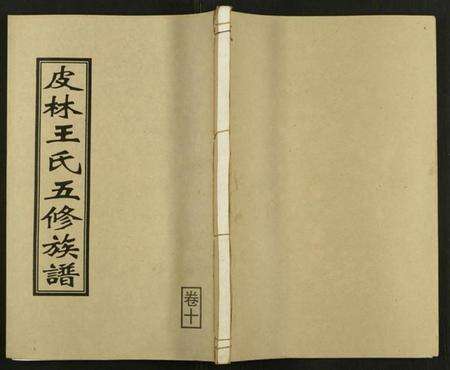 皮林王氏五修族譜
卷十